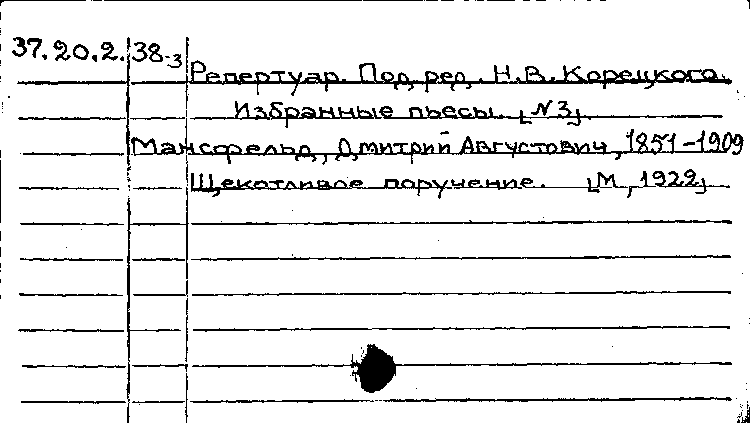 37.20.2. 38-3
Репертуар. Под ред. Н.В. Корецкого.
Избранные пьесы. [N3]
Мансфельд, Дмитрий Августович, 1851-1909
Щекотливое поручение. [М, 1922]